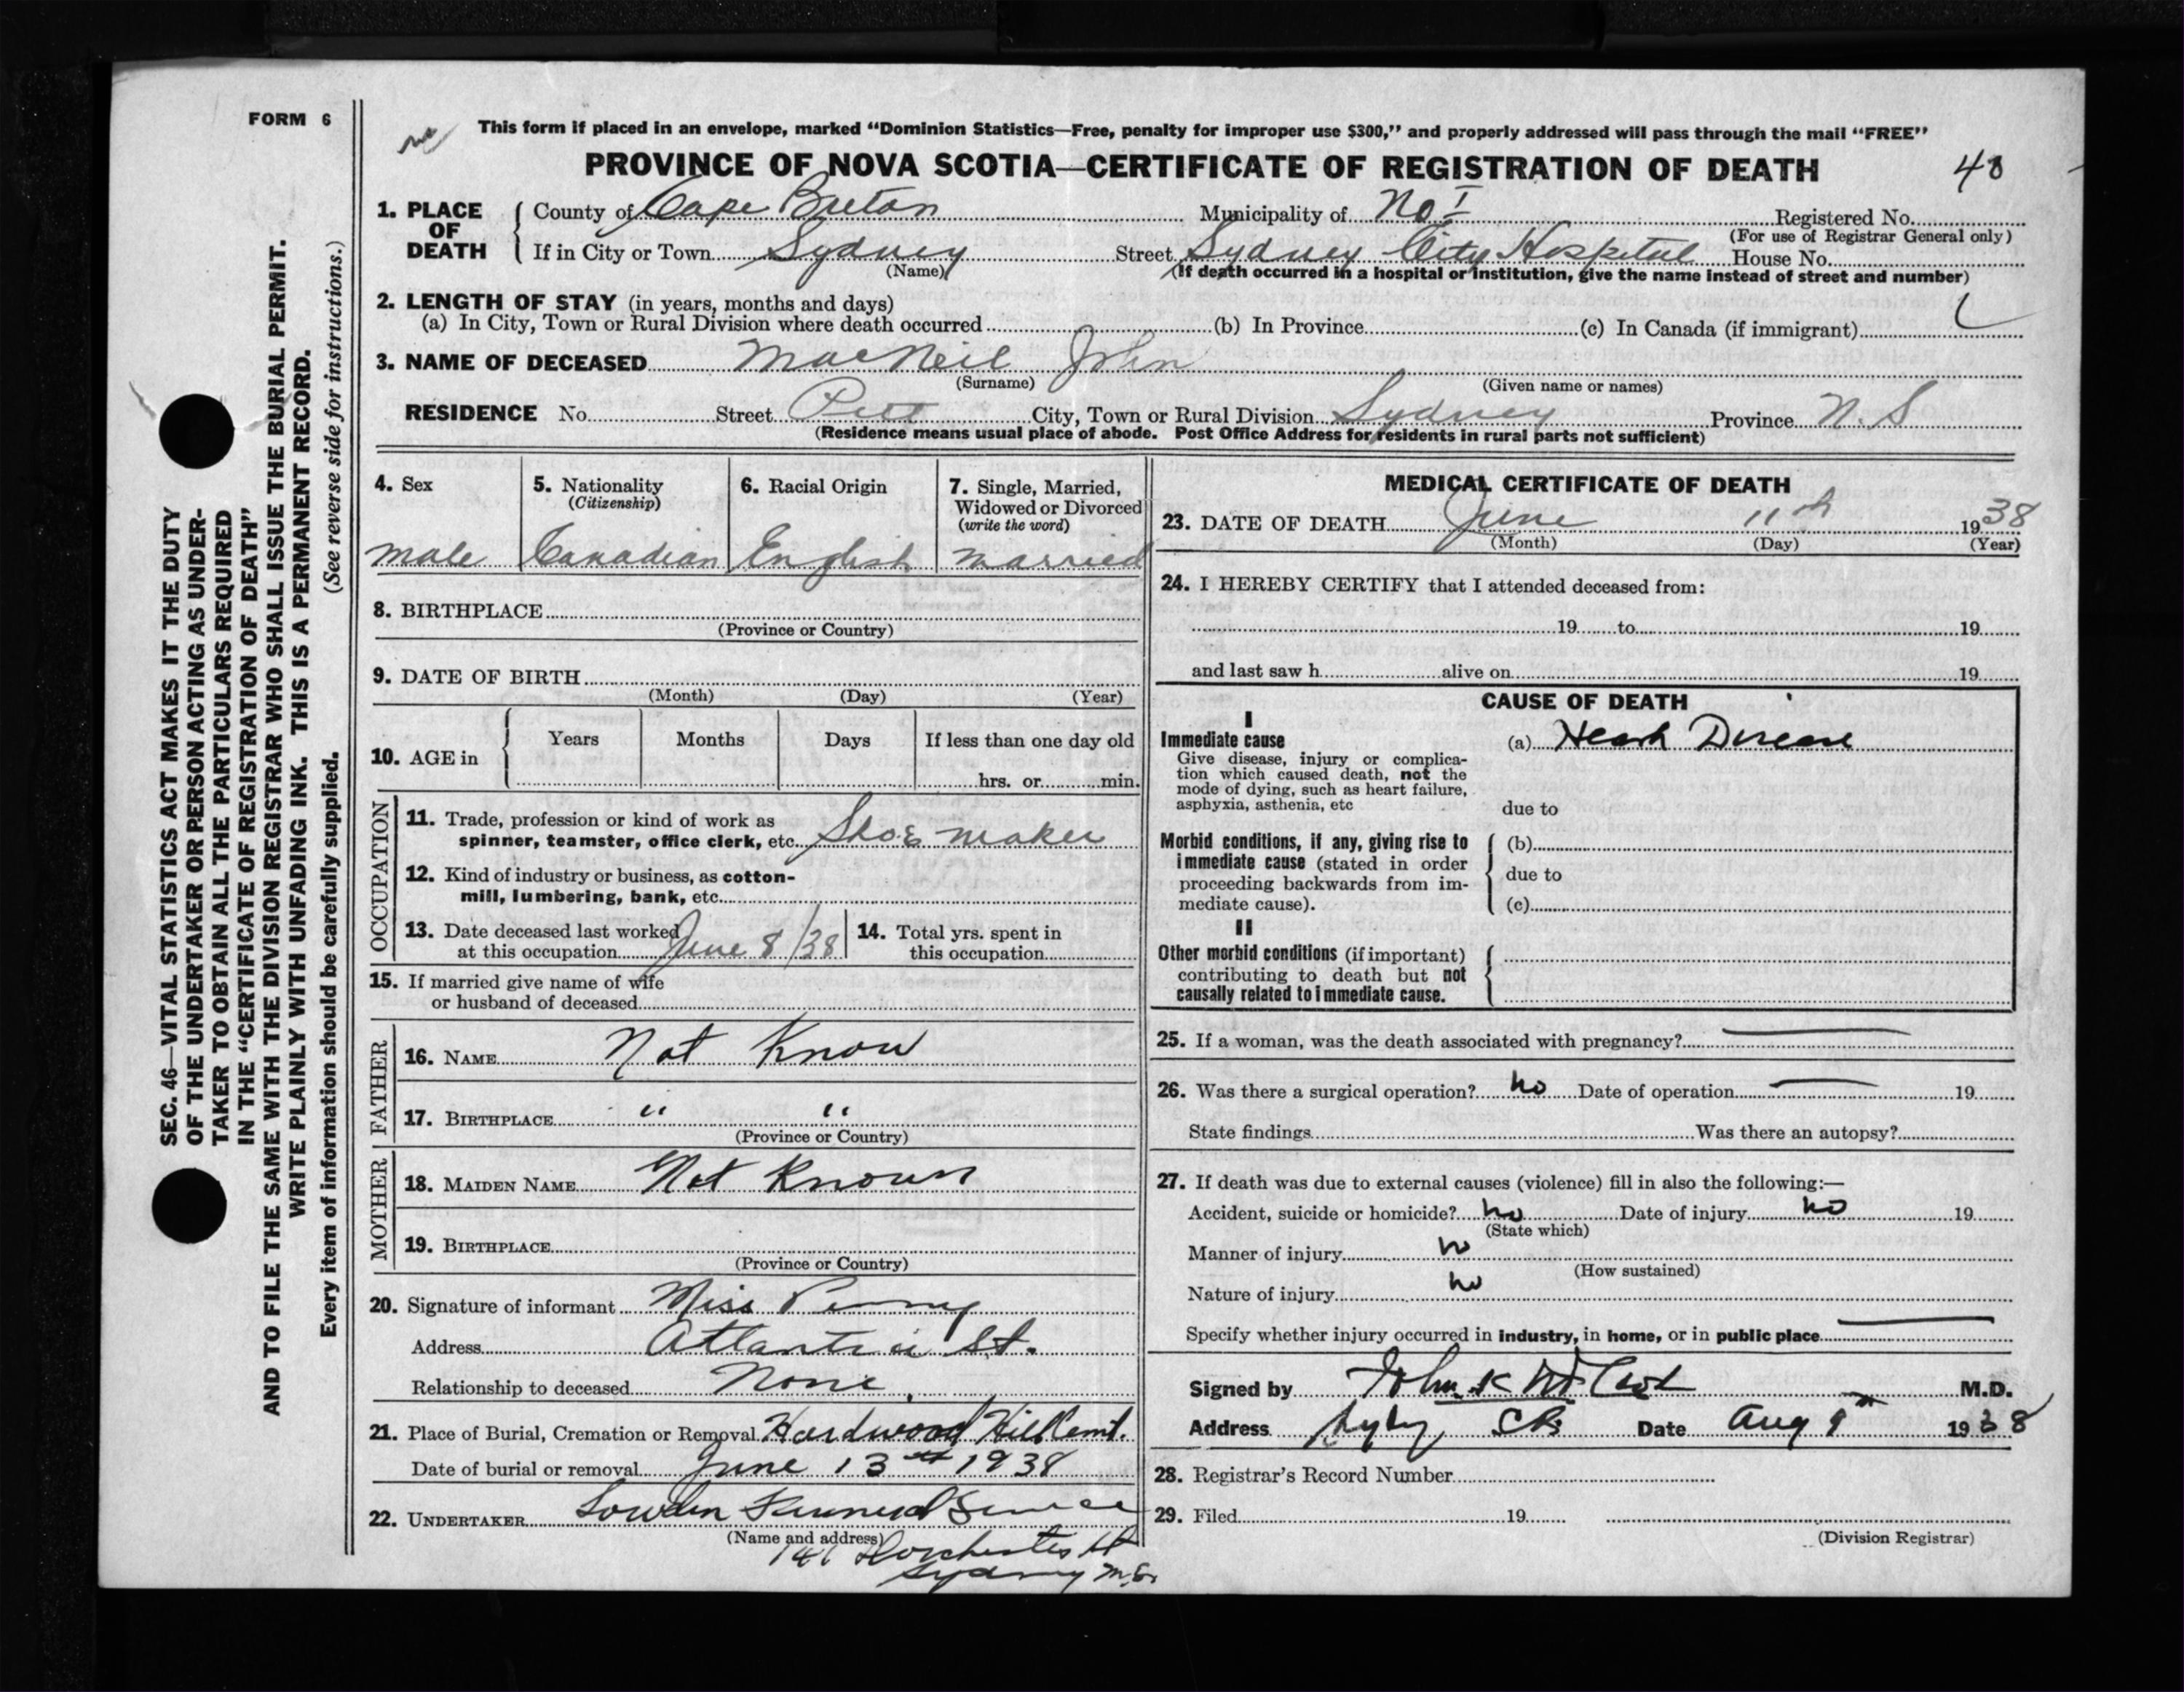 FORM 6
This form if placed in an envelope, marked “Dominion Statistics—Free, penalty for improper use $300,” and properly addressed will pass through the mail “FREE”
PROVINCE OF NOVA SCOTIA—CERTIFICATE OF REGISTRATION OF DEATH
1. PLACE OF DEATH
County of Cape Breton Municipality of No I Registered No.
(For use of Registrar General only)
If in City or Town Sydney Street Sydney City Hospital House No.
(Name) (If death occurred in a hospital or institution, give the name instead of street and number)
2. LENGTH OF STAY (in years, months and days)
(a) In City, Town or Rural Division where death occurred (b) In Province (c) In Canada (if immigrant)
3. NAME OF DECEASED MacNeil John
(Surname) (Given name or names)
RESIDENCE No. Street Pitt City, Town or Rural Division Sydney Province N.S
(Residence means usual place of abode. Post Office Address for residents in rural parts not sufficient)
4. Sex
male
5. Nationality
(Citizenship)
Canadian
6. Racial Origin
English
7. Single, Married,
Widowed or Divorced
(write the word)
married
8. BIRTHPLACE
(Province or Country)
9. DATE OF BIRTH
(Month) (Day) (Year)
10. AGE in
Years Months Days If less than one day old
hrs. or min.
OCCUPATION
11. Trade, profession or kind of work as
spinner, teamster, office clerk, etc. Shoe maker
12. Kind of industry or business, as cotton-
mill, lumbering, bank, etc.
13. Date deceased last worked
at this occupation June 8/38
14. Total yrs. spent in
this occupation
15. If married give name of wife
or husband of deceased
FATHER
16. NAME Not Know
17. BIRTHPLACE " "
(Province or Country)
MOTHER
18. MAIDEN NAME Not Known
19. BIRTHPLACE
(Province or Country)
20. Signature of informant Miss Penny
Address Atlantic St.
Relationship to deceased None.
21. Place of Burial, Cremation or Removal Hardwood Hill Cemt.
Date of burial or removal June 13th 1938
22. UNDERTAKER Lowden Funeral Service
(Name and address)
147 Dorchester St
Sydney N.S.
MEDICAL CERTIFICATE OF DEATH
23. DATE OF DEATH June 11th 1938
(Month) (Day) (Year)
24. I HEREBY CERTIFY that I attended deceased from:
19 to 19
and last saw h alive on 19
CAUSE OF DEATH
I
Immediate cause (a) Heart Disease
Give disease, injury or complica-
tion which caused death, not the
mode of dying, such as heart failure,
asphyxia, asthenia, etc
due to
Morbid conditions, if any, giving rise to
immediate cause (stated in order
proceeding backwards from im-
mediate cause).
(b)
due to
(c)
II
Other morbid conditions (if important)
contributing to death but not
causally related to immediate cause.
25. If a woman, was the death associated with pregnancy?
26. Was there a surgical operation? no Date of operation 19
State findings Was there an autopsy?
27. If death was due to external causes (violence) fill in also the following:—
Accident, suicide or homicide? no Date of injury no 19
(State which)
Manner of injury no
(How sustained)
Nature of injury no
Specify whether injury occurred in industry, in home, or in public place
Signed by John K M.D.
Address Date Aug 9th 1938
28. Registrar's Record Number
29. Filed 19
(Division Registrar)
SEC. 46—VITAL STATISTICS ACT MAKES IT THE DUTY
OF THE UNDERTAKER OR PERSON ACTING AS UNDER-
TAKER TO OBTAIN ALL THE PARTICULARS REQUIRED
IN THE “CERTIFICATE OF REGISTRATION OF DEATH”
AND TO FILE THE SAME WITH THE DIVISION REGISTRAR WHO SHALL ISSUE THE BURIAL PERMIT.
WRITE PLAINLY WITH UNFADING INK. THIS IS A PERMANENT RECORD.
Every item of information should be carefully supplied. (See reverse side for instructions.)